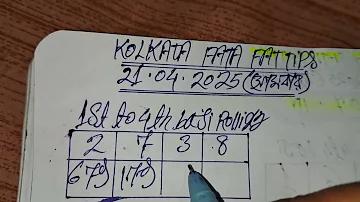 KOLKATA FATA FAT TIPS
21.04.2025 (সোমবার)
1St to 4th
2 7 3 8
679 179